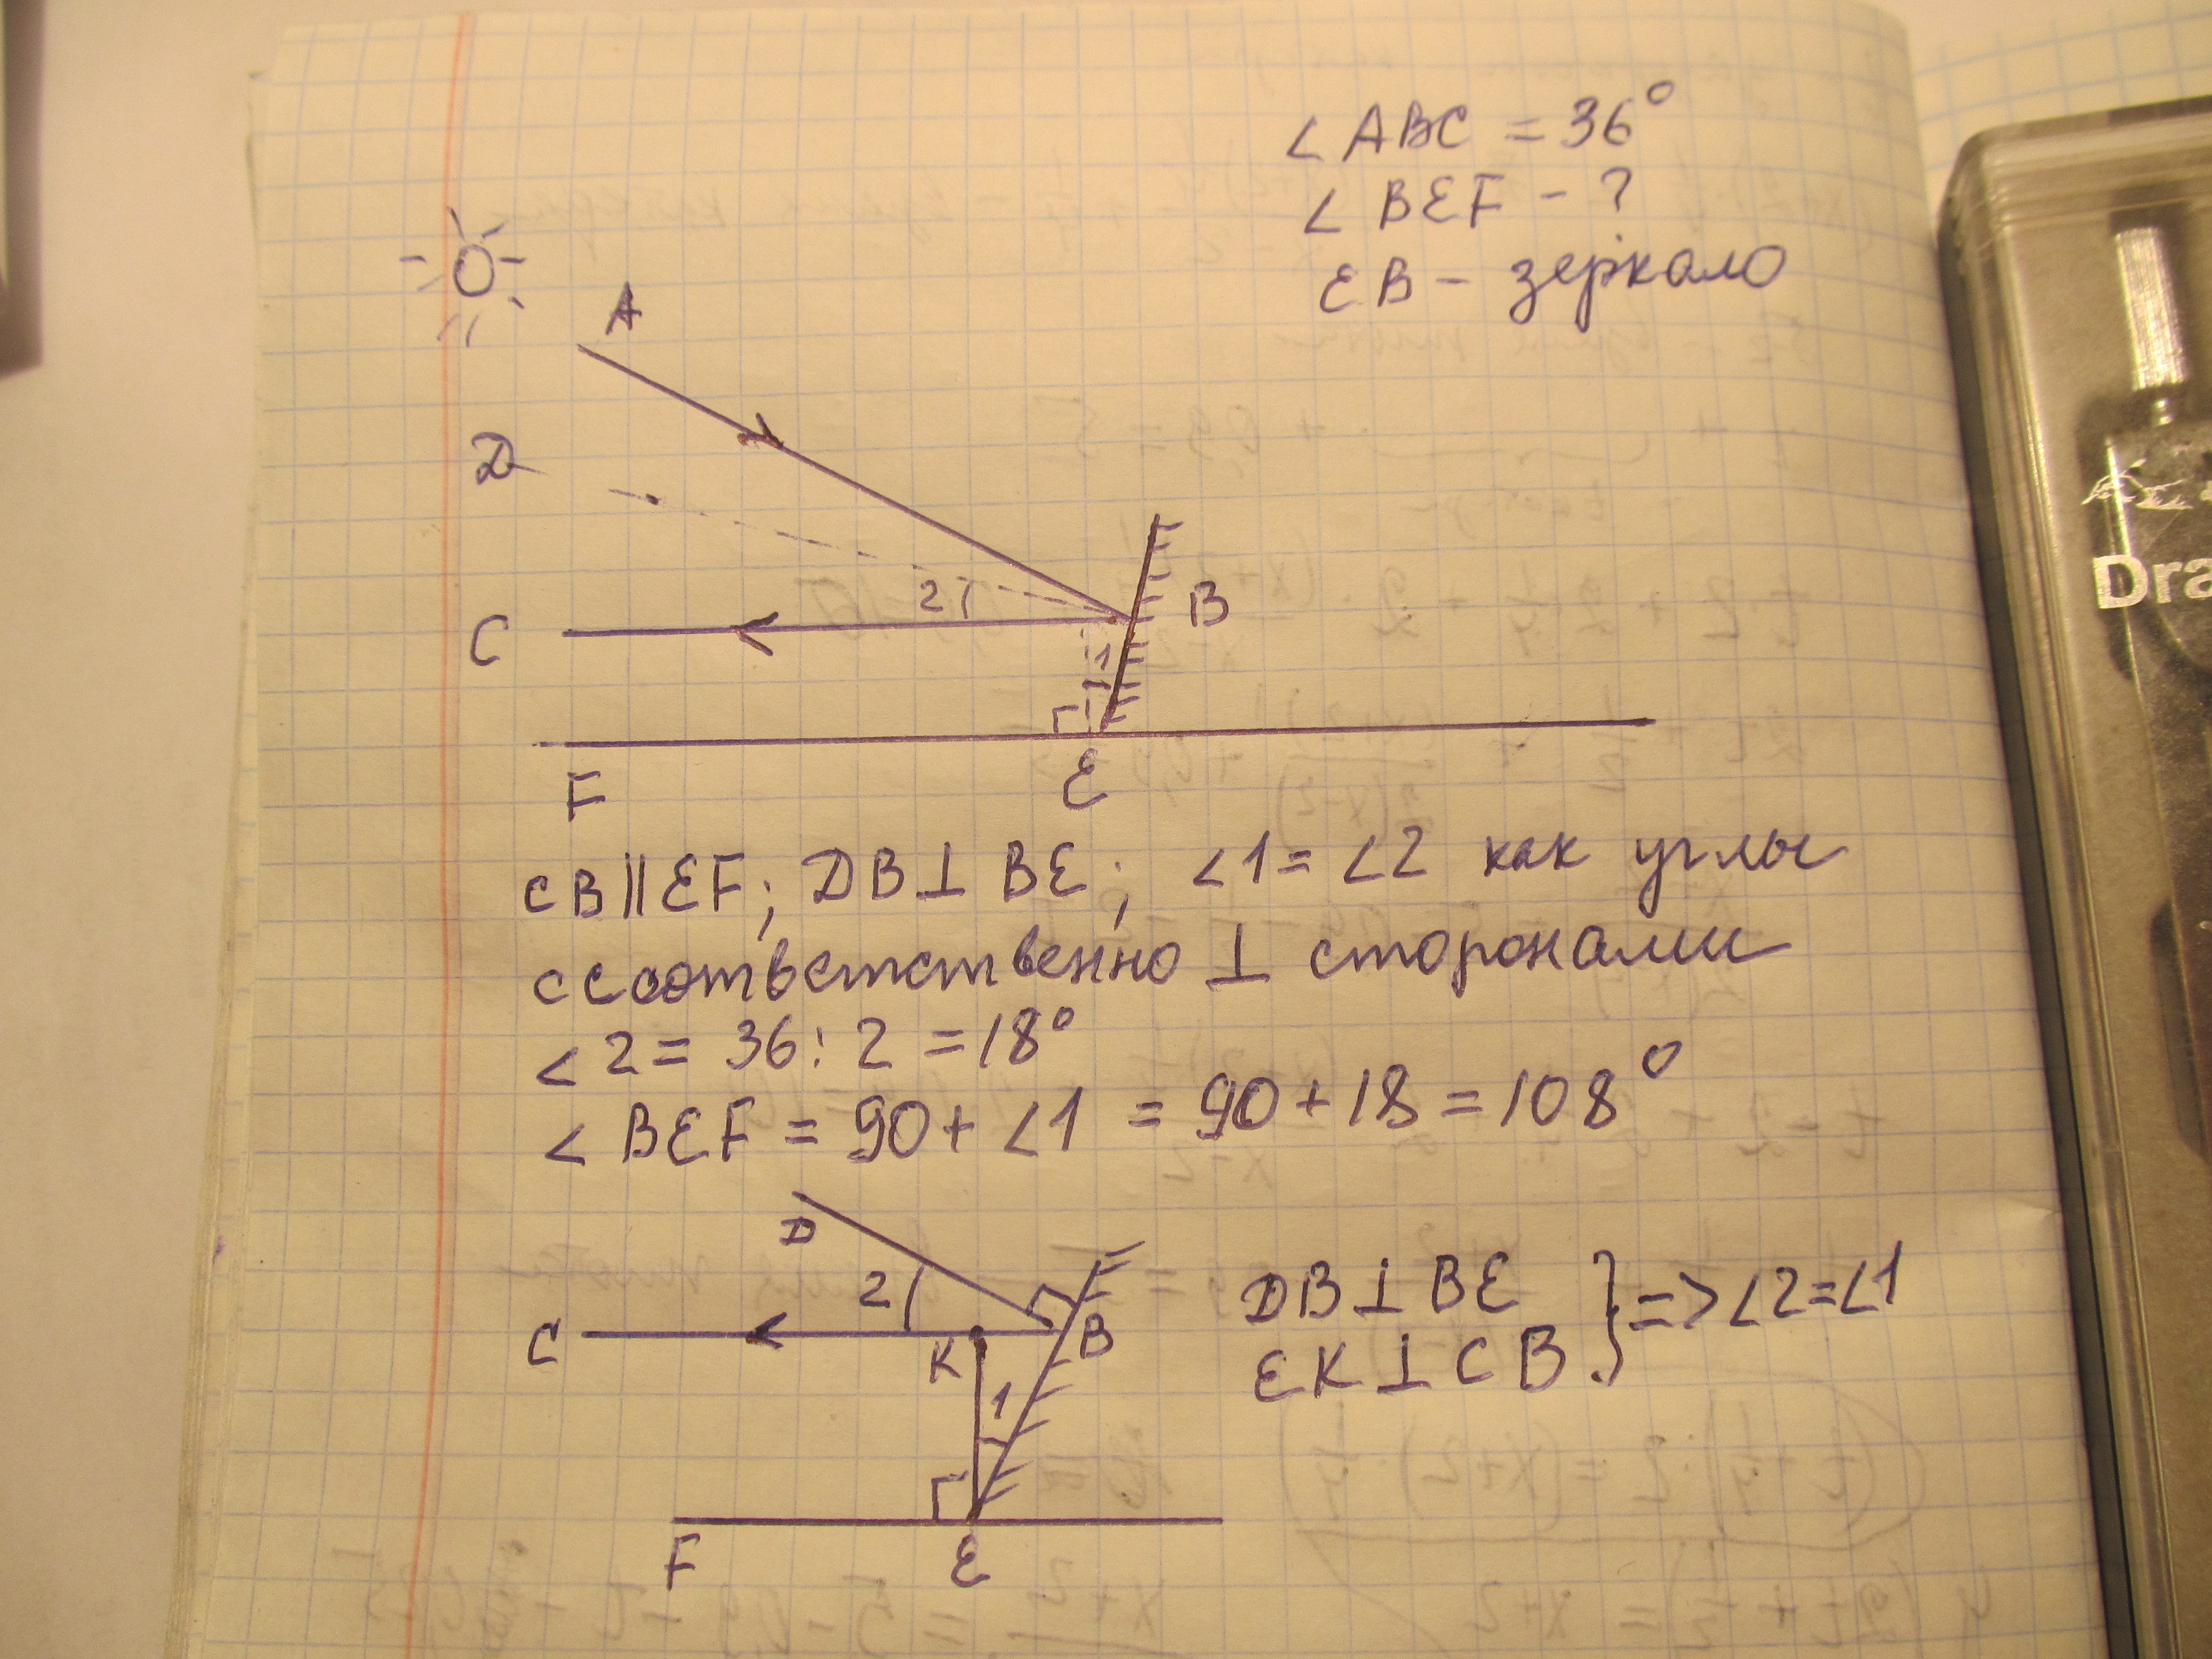 ∠ABC = 36°
∠BEF - ?
EB - зеркало
A
D
2
C
B
1
F
E
CB||EF; DB⊥BE; ∠1=∠2 как углы
с соответственно ⊥ сторонами
∠2 = 36:2 = 18°
∠BEF = 90+∠1 = 90+18 = 108°
D
2
C
K
B
1
F
E
DB⊥BE
EK⊥CB } => ∠2=∠1
Dra